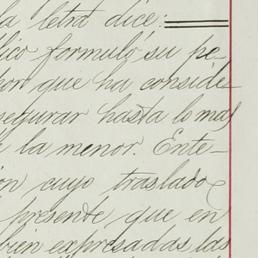 la letra dice:
lico formuló su pe-
por que ha conside-
segurar hasta lo mas
e la menor. Ente-
ón cuyo traslado
presente que en
bien expresadas las